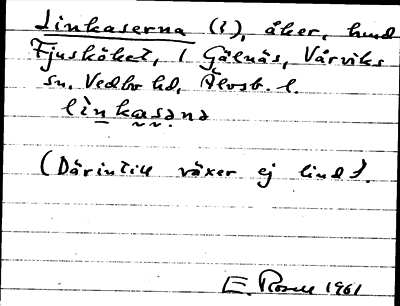 Linkaserna (?), åker, hmd
Fjusköket, 1 Gälnäs, Vårviks
sn, Vedbo hd, Älvsb. l.
lìnkasəna
(Därintill växer ej lind).
E. Rosell 1961